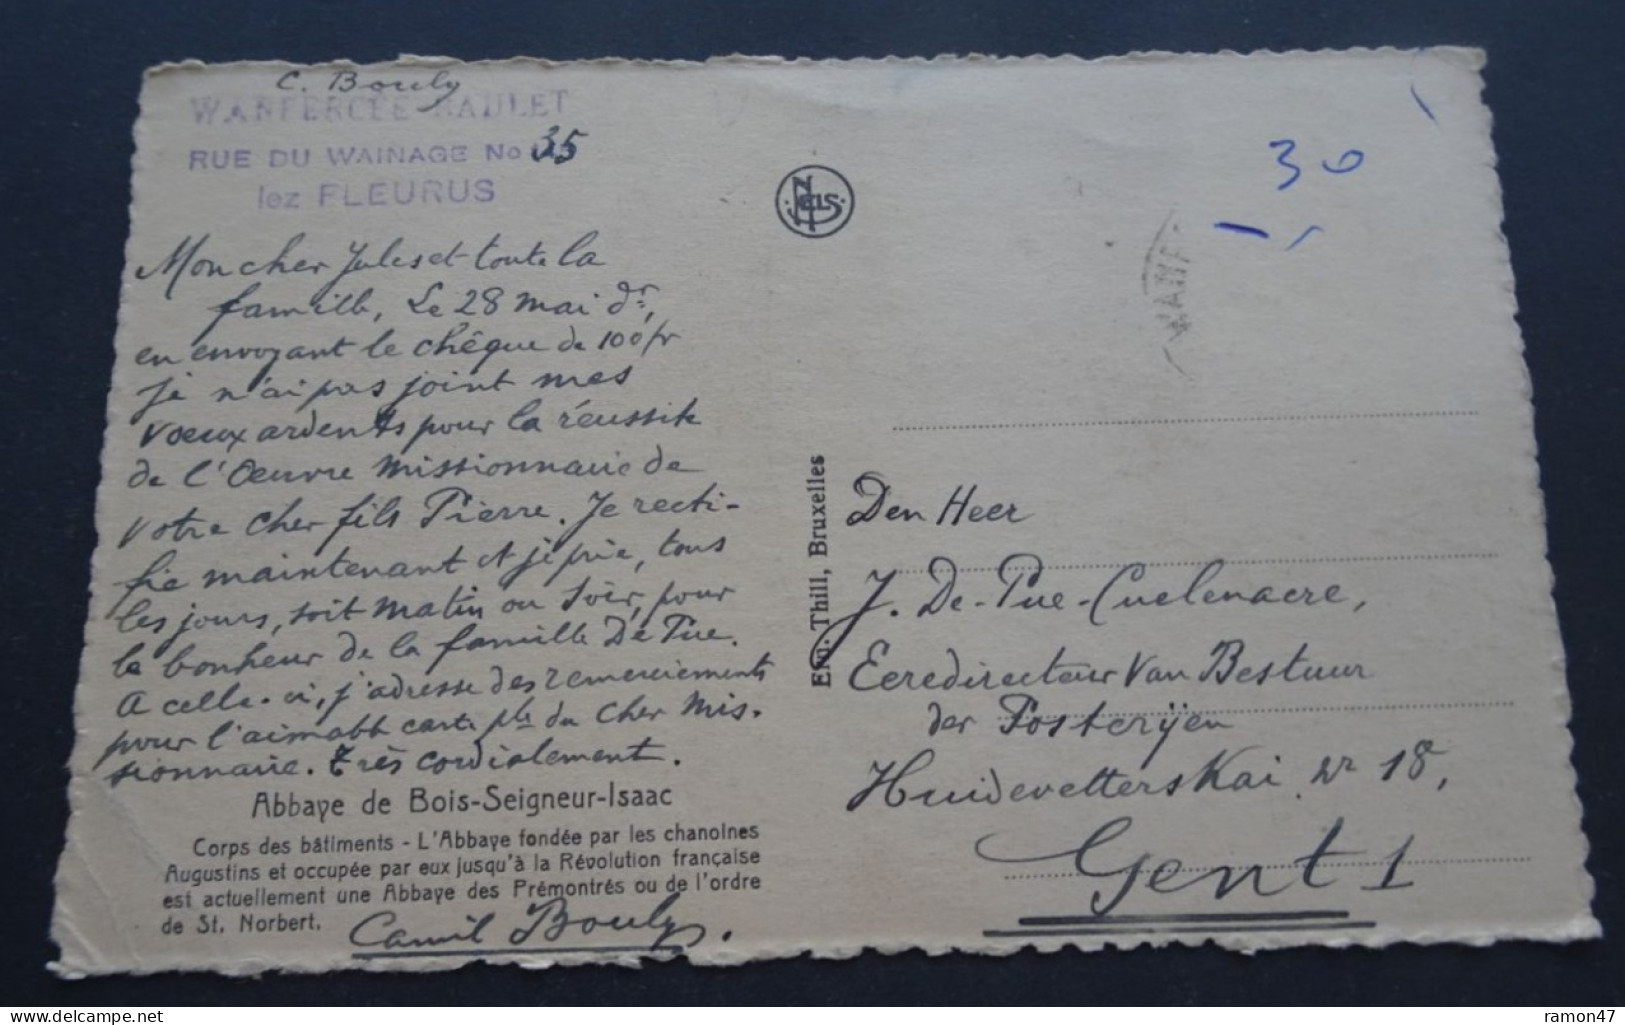 C. Bouly
WANFERCÉE-BAULET
RUE DU WAINAGE No 35
lez FLEURUS
Mon cher Jules et toute la
famille, Le 28 mai dr,
en envoyant le chêque de 100 fr
je n'ai pas joint mes
vœux ardents pour la réussite
de l'Oeuvre missionnaire de
votre cher fils Pierre. Je recti-
fie maintenant et je prie, tous
les jours, soit matin ou soir, pour
le bonheur de la famille De Pue.
A celle-ci, j'adresse des remerciements
pour l'aimable carte ple du cher Mis-
sionnaire. Très cordialement.
Abbaye de Bois-Seigneur-Isaac
Corps des bâtiments - L'Abbaye fondée par les chanoines
Augustins et occupée par eux jusqu'à la Révolution française
est actuellement une Abbaye des Prémontrés ou de l'ordre
de St. Norbert.
Camil Bouly.
NELS
Ern. Thill, Bruxelles
30
WANF
Den Heer
J. De-Pue-Cuelenaere,
Eeredirecteur van Bestuur
der Posterijen
Huidevetterskai nr 18,
Gent 1
delcampe.net
ramon47